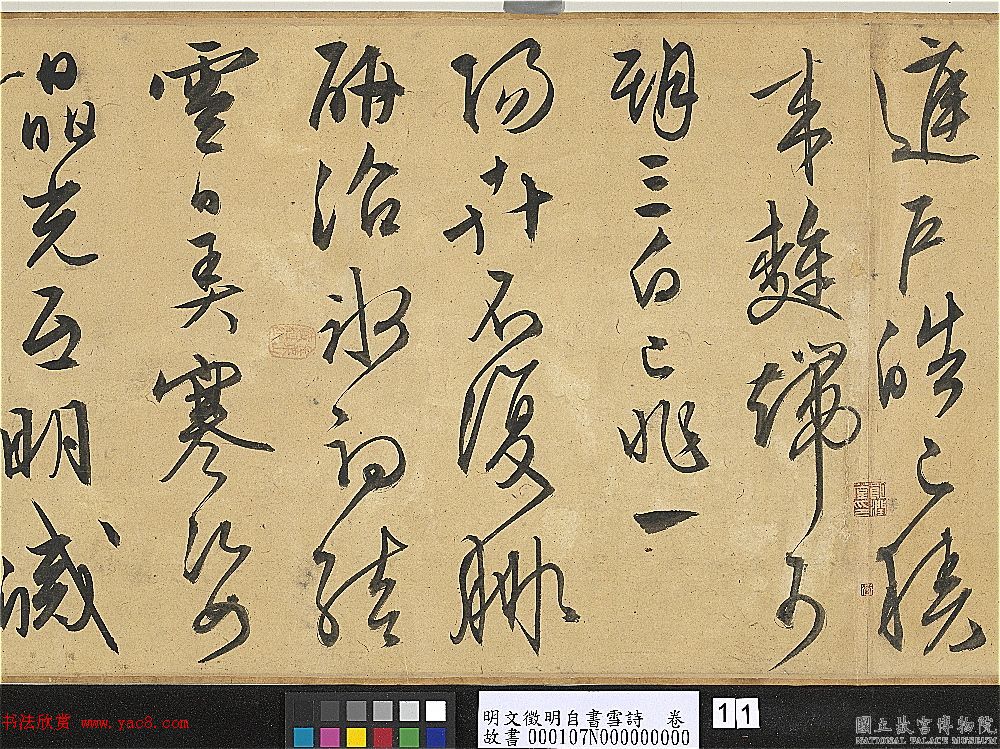 戶皓已曉
來麰端可
期三白已兆一
陽卉不復腓
研冶冰初結
雪日弄寒姿
晶光互明滅
书法欣赏 www.yac8.com
明文徵明自書雪詩 卷
故書 000107N000000000
11
國立故宮博物院
NATIONAL PALACE MUSEUM